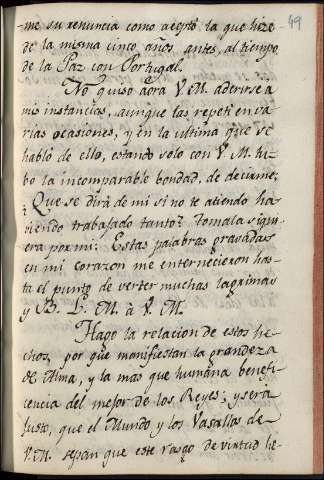 49
-me su renuncia como aceptó la que hize
de la misma cinco años antes, al tiempo
de la Paz con Portugal.
No quiso aora V. M. aderirse a
mis instancias, aunque las repeti en va-
rias ocasiones, y en la ultima que se
habló de ello, estando solo con V. M. hu-
bo la incomparable bondad, de decirme;
Que se dirá de mi si no te atiendo ha-
biendo trabajado tanto? Tomala siqui-
era por mi: Estas palabras gravadas
en mi corazon me enternecieron has-
ta el punto de verter muchas lagrimas
y B. L. M. à V. M.
Hago la relacion de estos he-
chos, por que manifiestan la grandeza
de Alma, y la mas que humana benefi-
cencia del mejor de los Reyes; y será
justo, que el Mundo y los Vasallos de
V. M. sepan que este rasgo de virtud he-